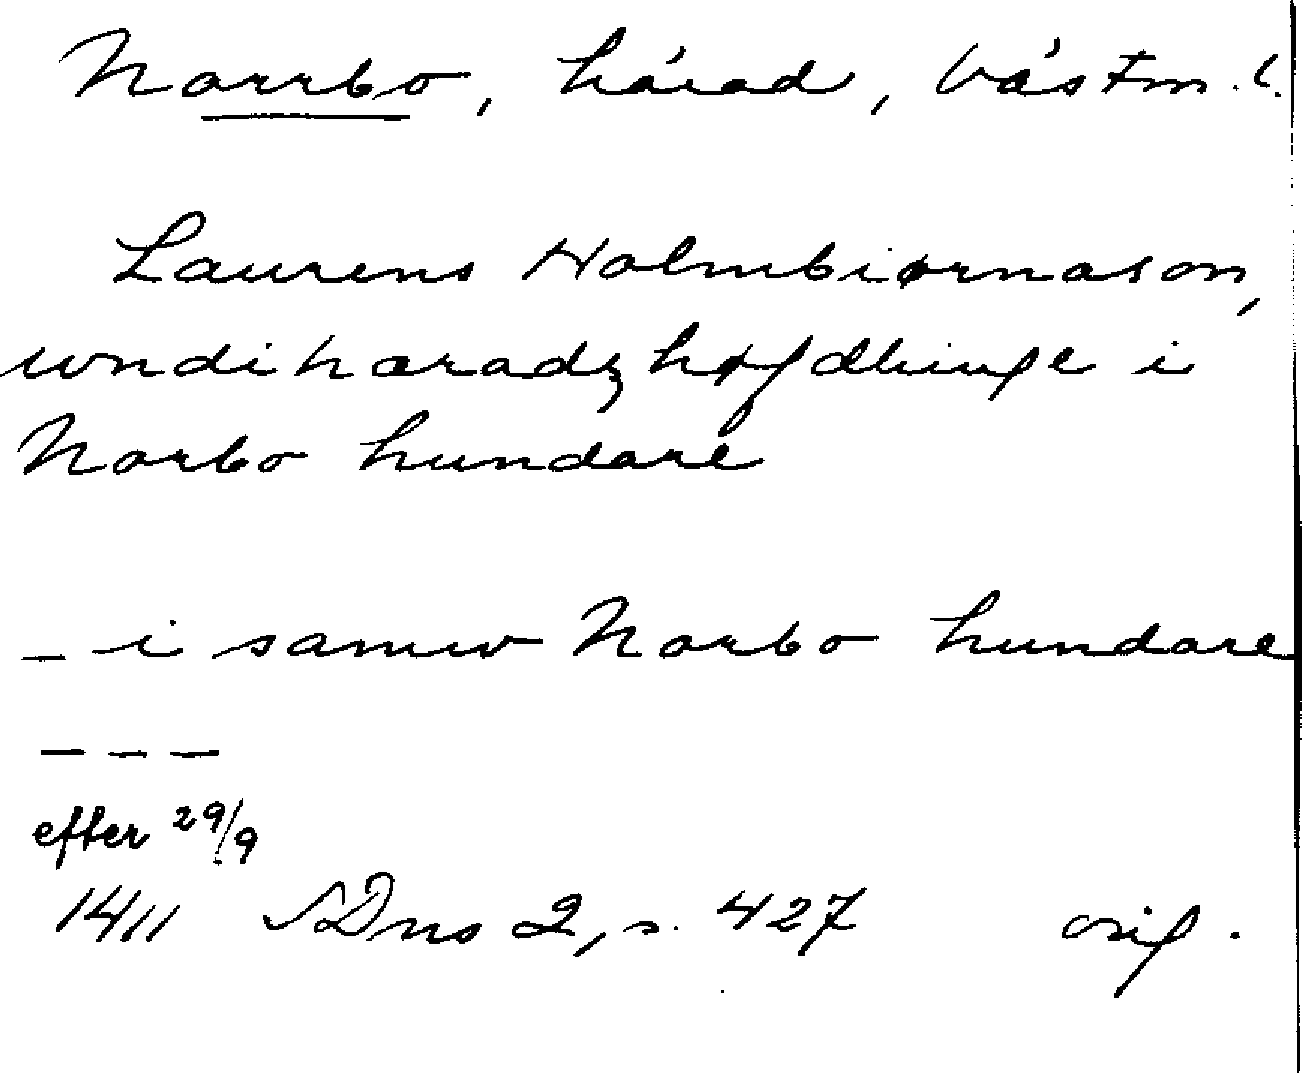 Norrbo, härad, Västm. l.
Laurens Holmbiørnason,
wndihæradzhøfdhinge i
Norbo hundare
_ i samw Norbo hundare
_ _ _
efter 29/9
1411 SDns 2, s. 427 orig.